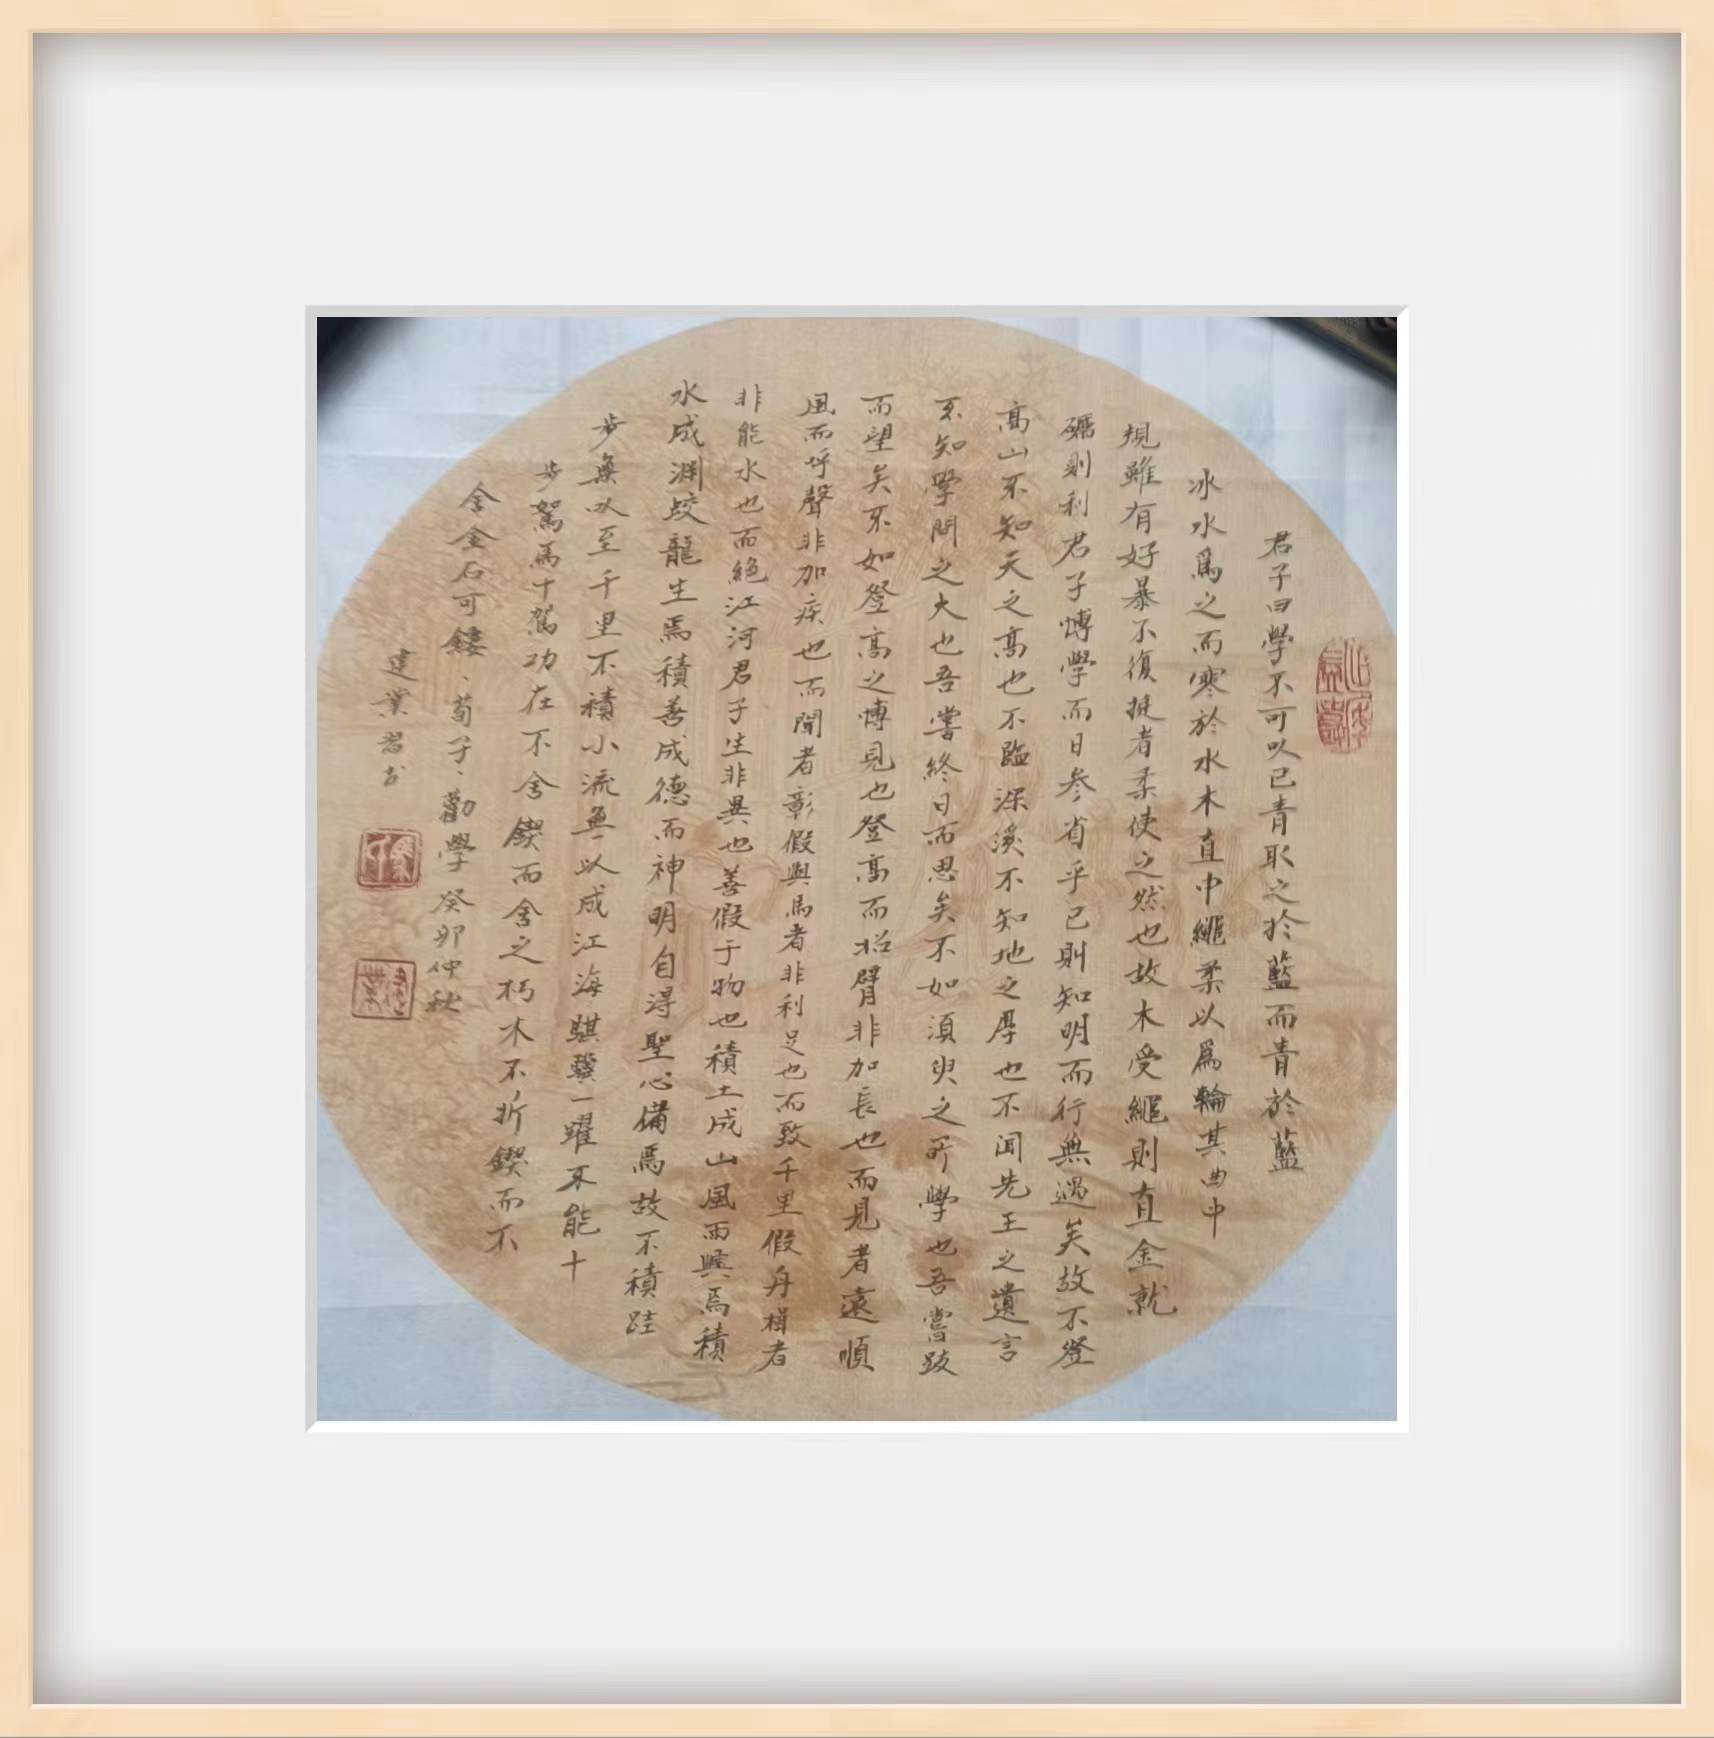 君子曰學不可以已青取之於藍而青於藍
冰水爲之而寒於水木直中繩柔以爲輪其曲中
規雖有好暴不復挺者柔使之然也故木受繩則直金就
礪則利君子博學而日参省乎己則知明而行無過矣故不登
高山不知天之高也不臨深溪不知地之厚也不闻先王之遺言
不知學問之大也吾嘗終日而思矣不如須臾之所學也吾嘗跂
而望矣不如登高之博見也登高而招臂非加長也而見者遠順
風而呼聲非加疾也而聞者彰假與馬者非利足也而致千里假舟楫者
非能水也而絕江河君子生非異也善假于物也積土成山風雨興焉積
水成渊蛟龍生焉積善成德而神明自得聖心備焉故不積跬
步無以至千里不積小流無以成江海騏驥一躍不能十
步駑馬十駕功在不舍鍥而舍之朽木不折鍥而不
舍金石可鏤、荀子、勸學 癸卯仲秋
建業書於